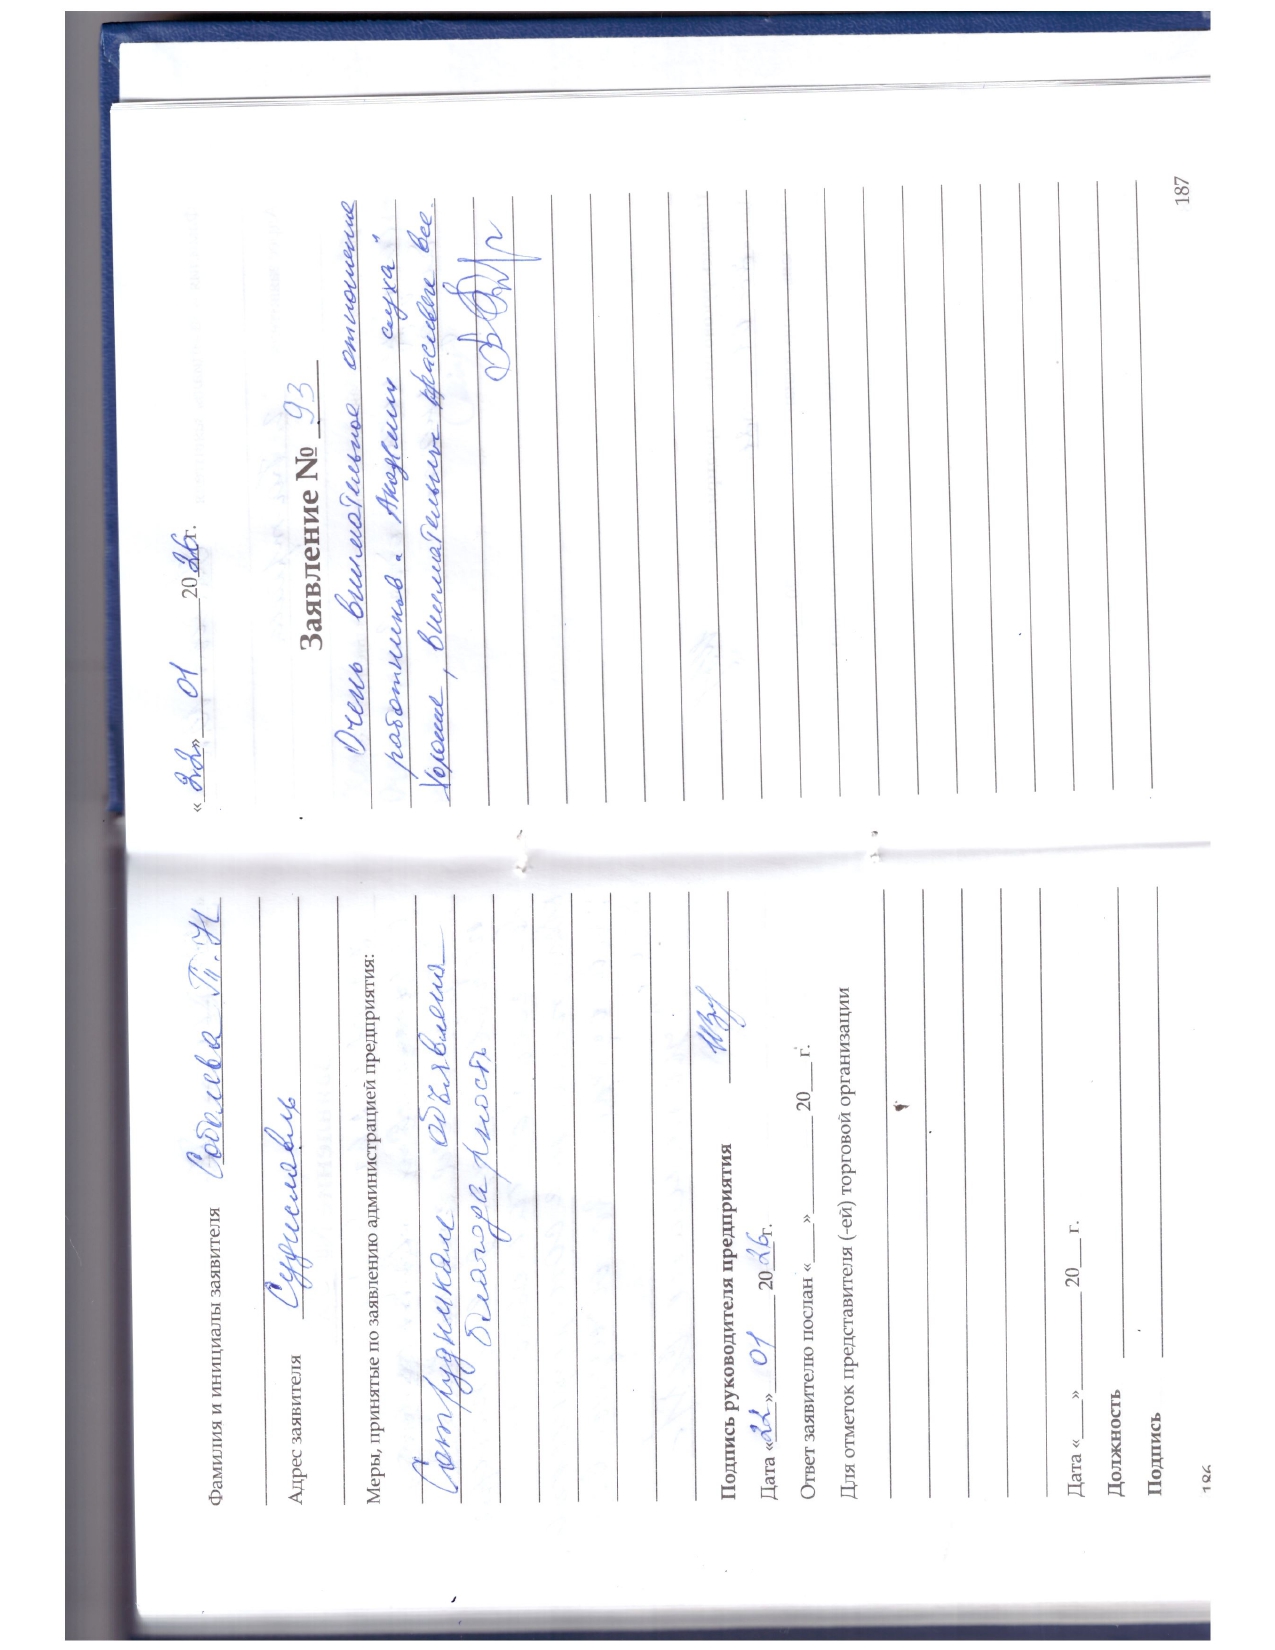 Фамилия и инициалы заявителя Соболева Т.Н
Адрес заявителя Судиславль
Меры, принятые по заявлению администрацией предприятия:
Сотрудникам объявлена
благодарность
Подпись руководителя предприятия
Дата «22» 01 2026г.
Ответ заявителю послан «___» ________ 20___ г.
Для отметок представителя (-ей) торговой организации
Дата «____» ________ 20___ г.
Должность
Подпись
186
«22» 01 2026г.
Заявление № 93
Очень внимательное отношение
работников "Академии слуха"
Хорошие, внимательные красивые все.
187